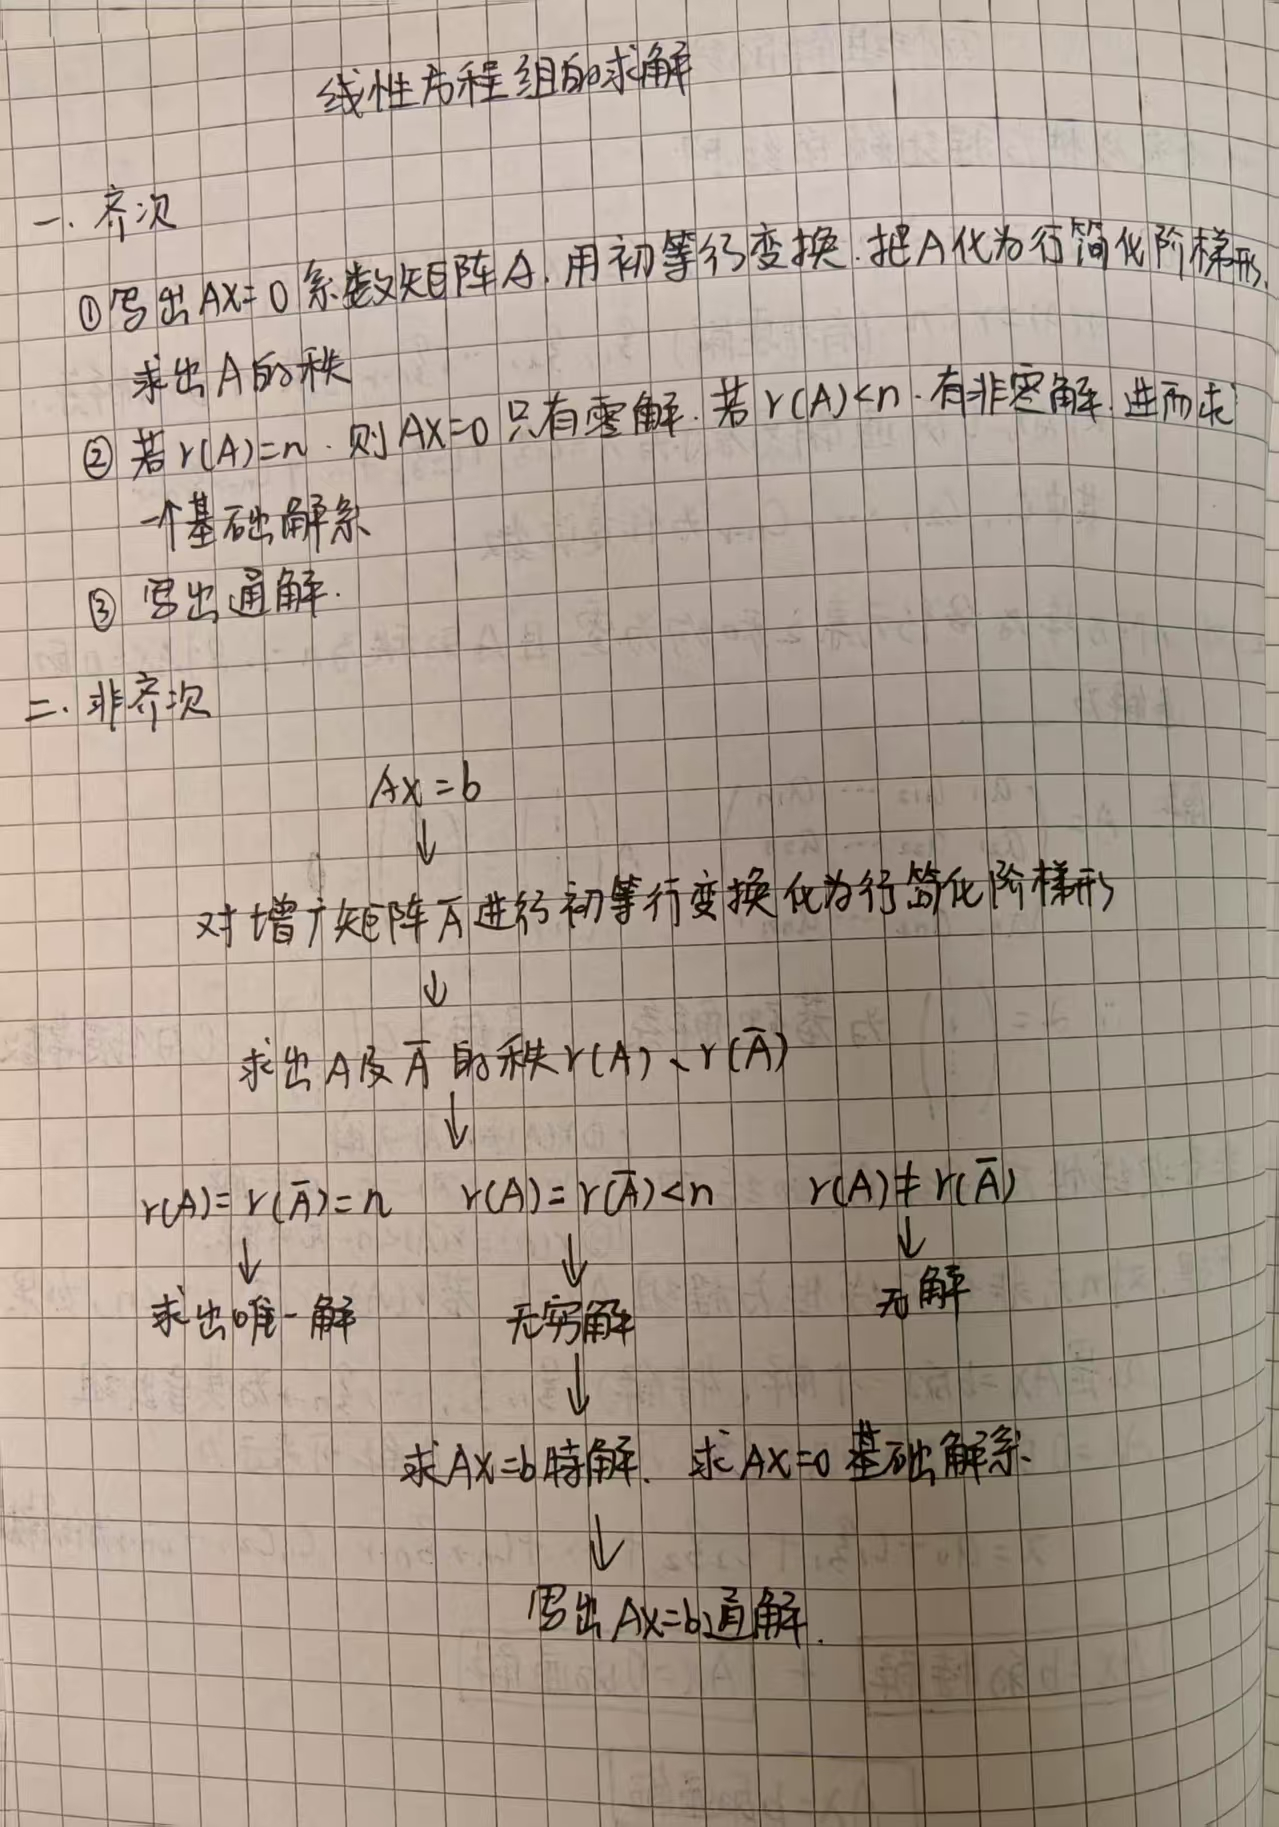 线性方程组的求解
一. 齐次
① 写出AX=0 系数矩阵A. 用初等行变换. 把A化为行简化阶梯形.
求出A的秩
② 若r(A)=n. 则AX=0只有零解. 若r(A)<n. 有非零解. 进而求
一个基础解系
③ 写出通解.
二. 非齐次
AX=b
↓
对增广矩阵Ā进行初等行变换化为行简化阶梯形
↓
求出A及Ā的秩r(A)、r(Ā)
↓
r(A)=r(Ā)=n r(A)=r(Ā)<n r(A)≠r(Ā)
↓ ↓ ↓
求出唯一解 无穷解 无解
↓
求AX=b特解. 求AX=0基础解系.
↓
写出AX=b通解.